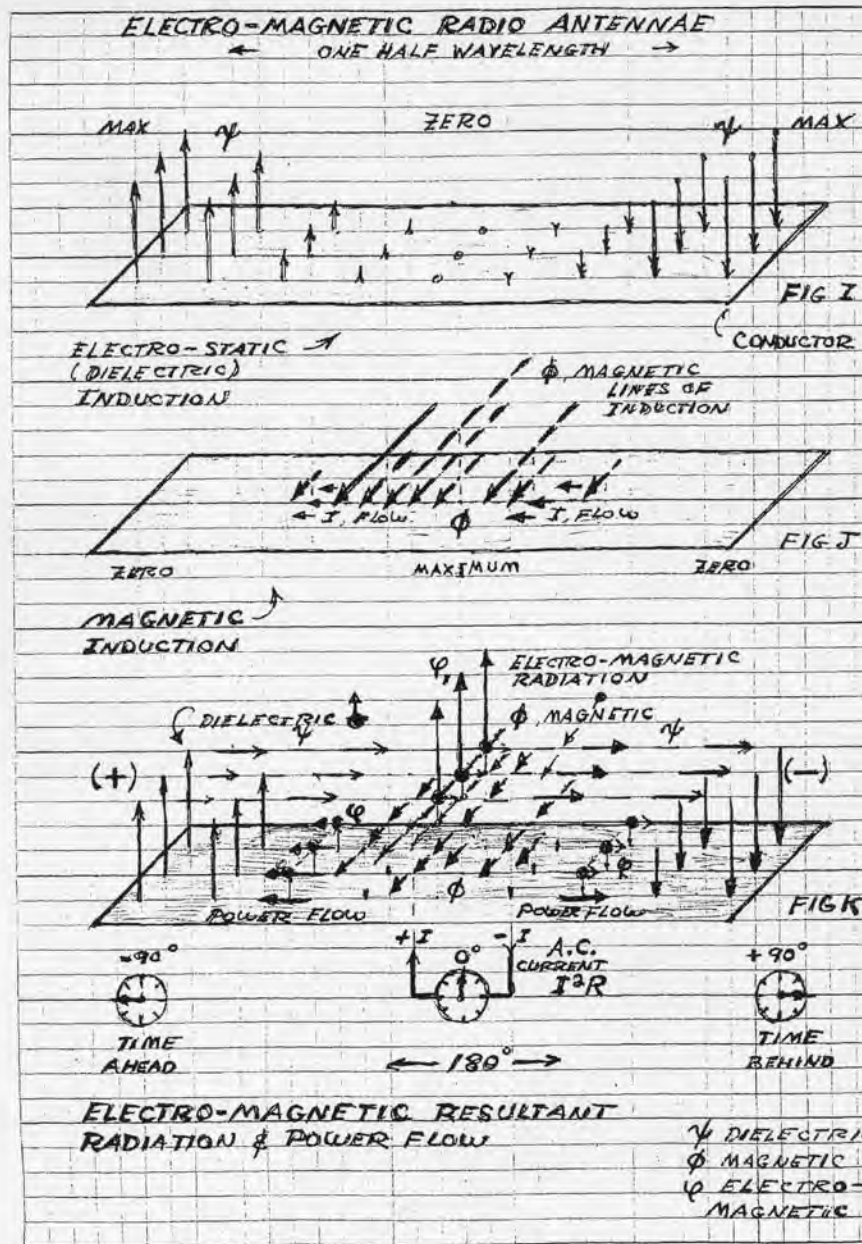 ELECTRO-MAGNETIC RADIO ANTENNAE
← ONE HALF WAVELENGTH →
MAX ψ ZERO ψ MAX
FIG I
CONDUCTOR
ELECTRO-STATIC
(DIELECTRIC)
INDUCTION
ϕ, MAGNETIC
LINES OF
INDUCTION
← I, FLOW ϕ ← I, FLOW
FIG J
ZERO MAXIMUM ZERO
MAGNETIC
INDUCTION
φ, ELECTRO-MAGNETIC
RADIATION
DIELECTRIC
ψ ϕ, MAGNETIC ψ
(+) (-)
φ
φ ϕ φ
POWER FLOW POWER FLOW
FIG K
-90° +I 0° -I A.C. +90°
CURRENT
I²R
TIME TIME
AHEAD ← 180° → BEHIND
ELECTRO-MAGNETIC RESULTANT
RADIATION & POWER FLOW
ψ DIELECTRI
ϕ MAGNETIC
φ ELECTRO-
MAGNETIC